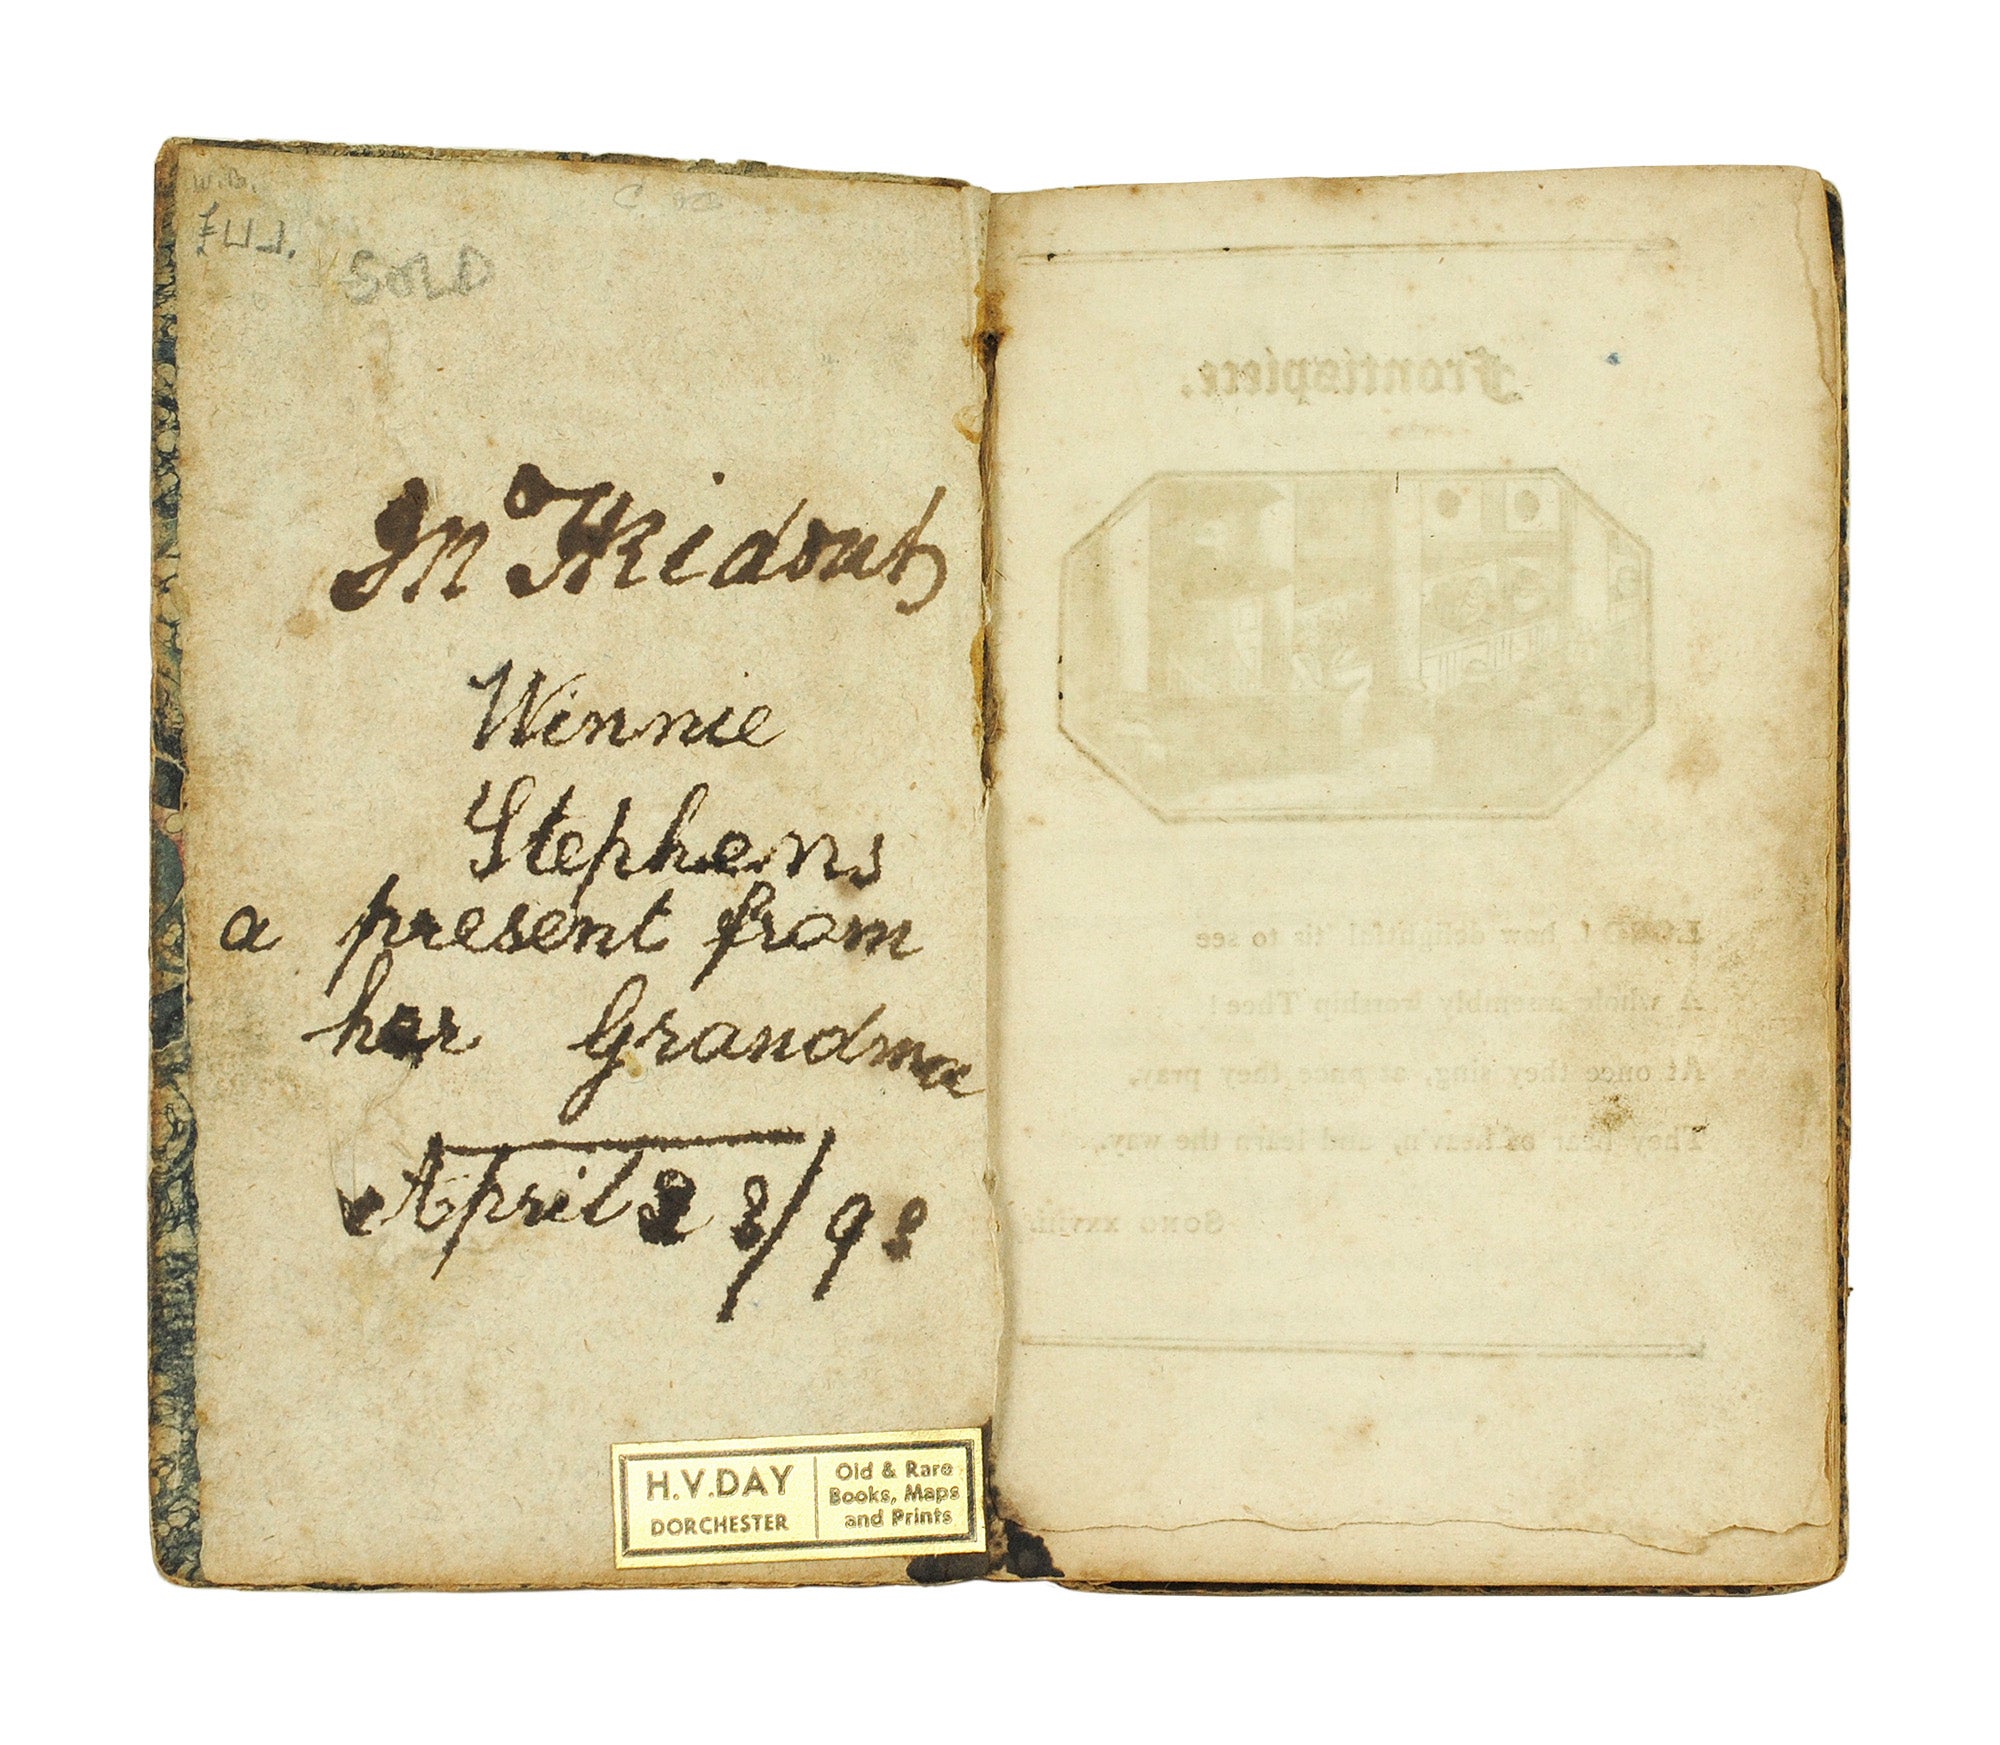 W.B.
SOLD
Winnie
Stephens
a present from
her Grandma
April 28/98
H.V.DAY
DORCHESTER
Old & Rare
Books, Maps
and Prints
Frontispiece.
LORD! how delightful 'tis to see
A whole assembly worship Thee!
At once they sing, at once they pray,
They hear of heaven, and learn the way.
SONG xxviii.